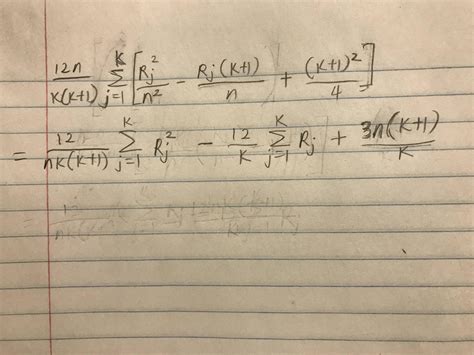 12n/K(K+1) K∑j=1 [Rj²/n² − Rj(K+1)/n + (K+1)²/4]
= 12/nK(K+1) K∑j=1 Rj² − 12/K K∑j=1 Rj + 3n(K+1)/K